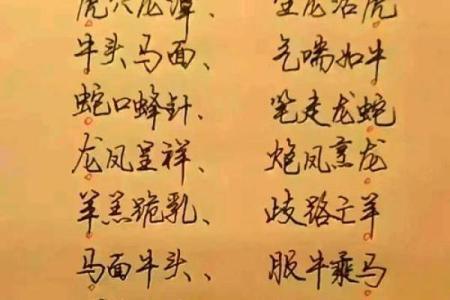 虎穴龙潭、 生龙活虎
牛头马面、 气喘如牛
蛇口蜂针、 笔走龙蛇
龙凤呈祥、 炮凤烹龙
羊羔跪乳、 歧路亡羊
马面牛头、 服牛乘马